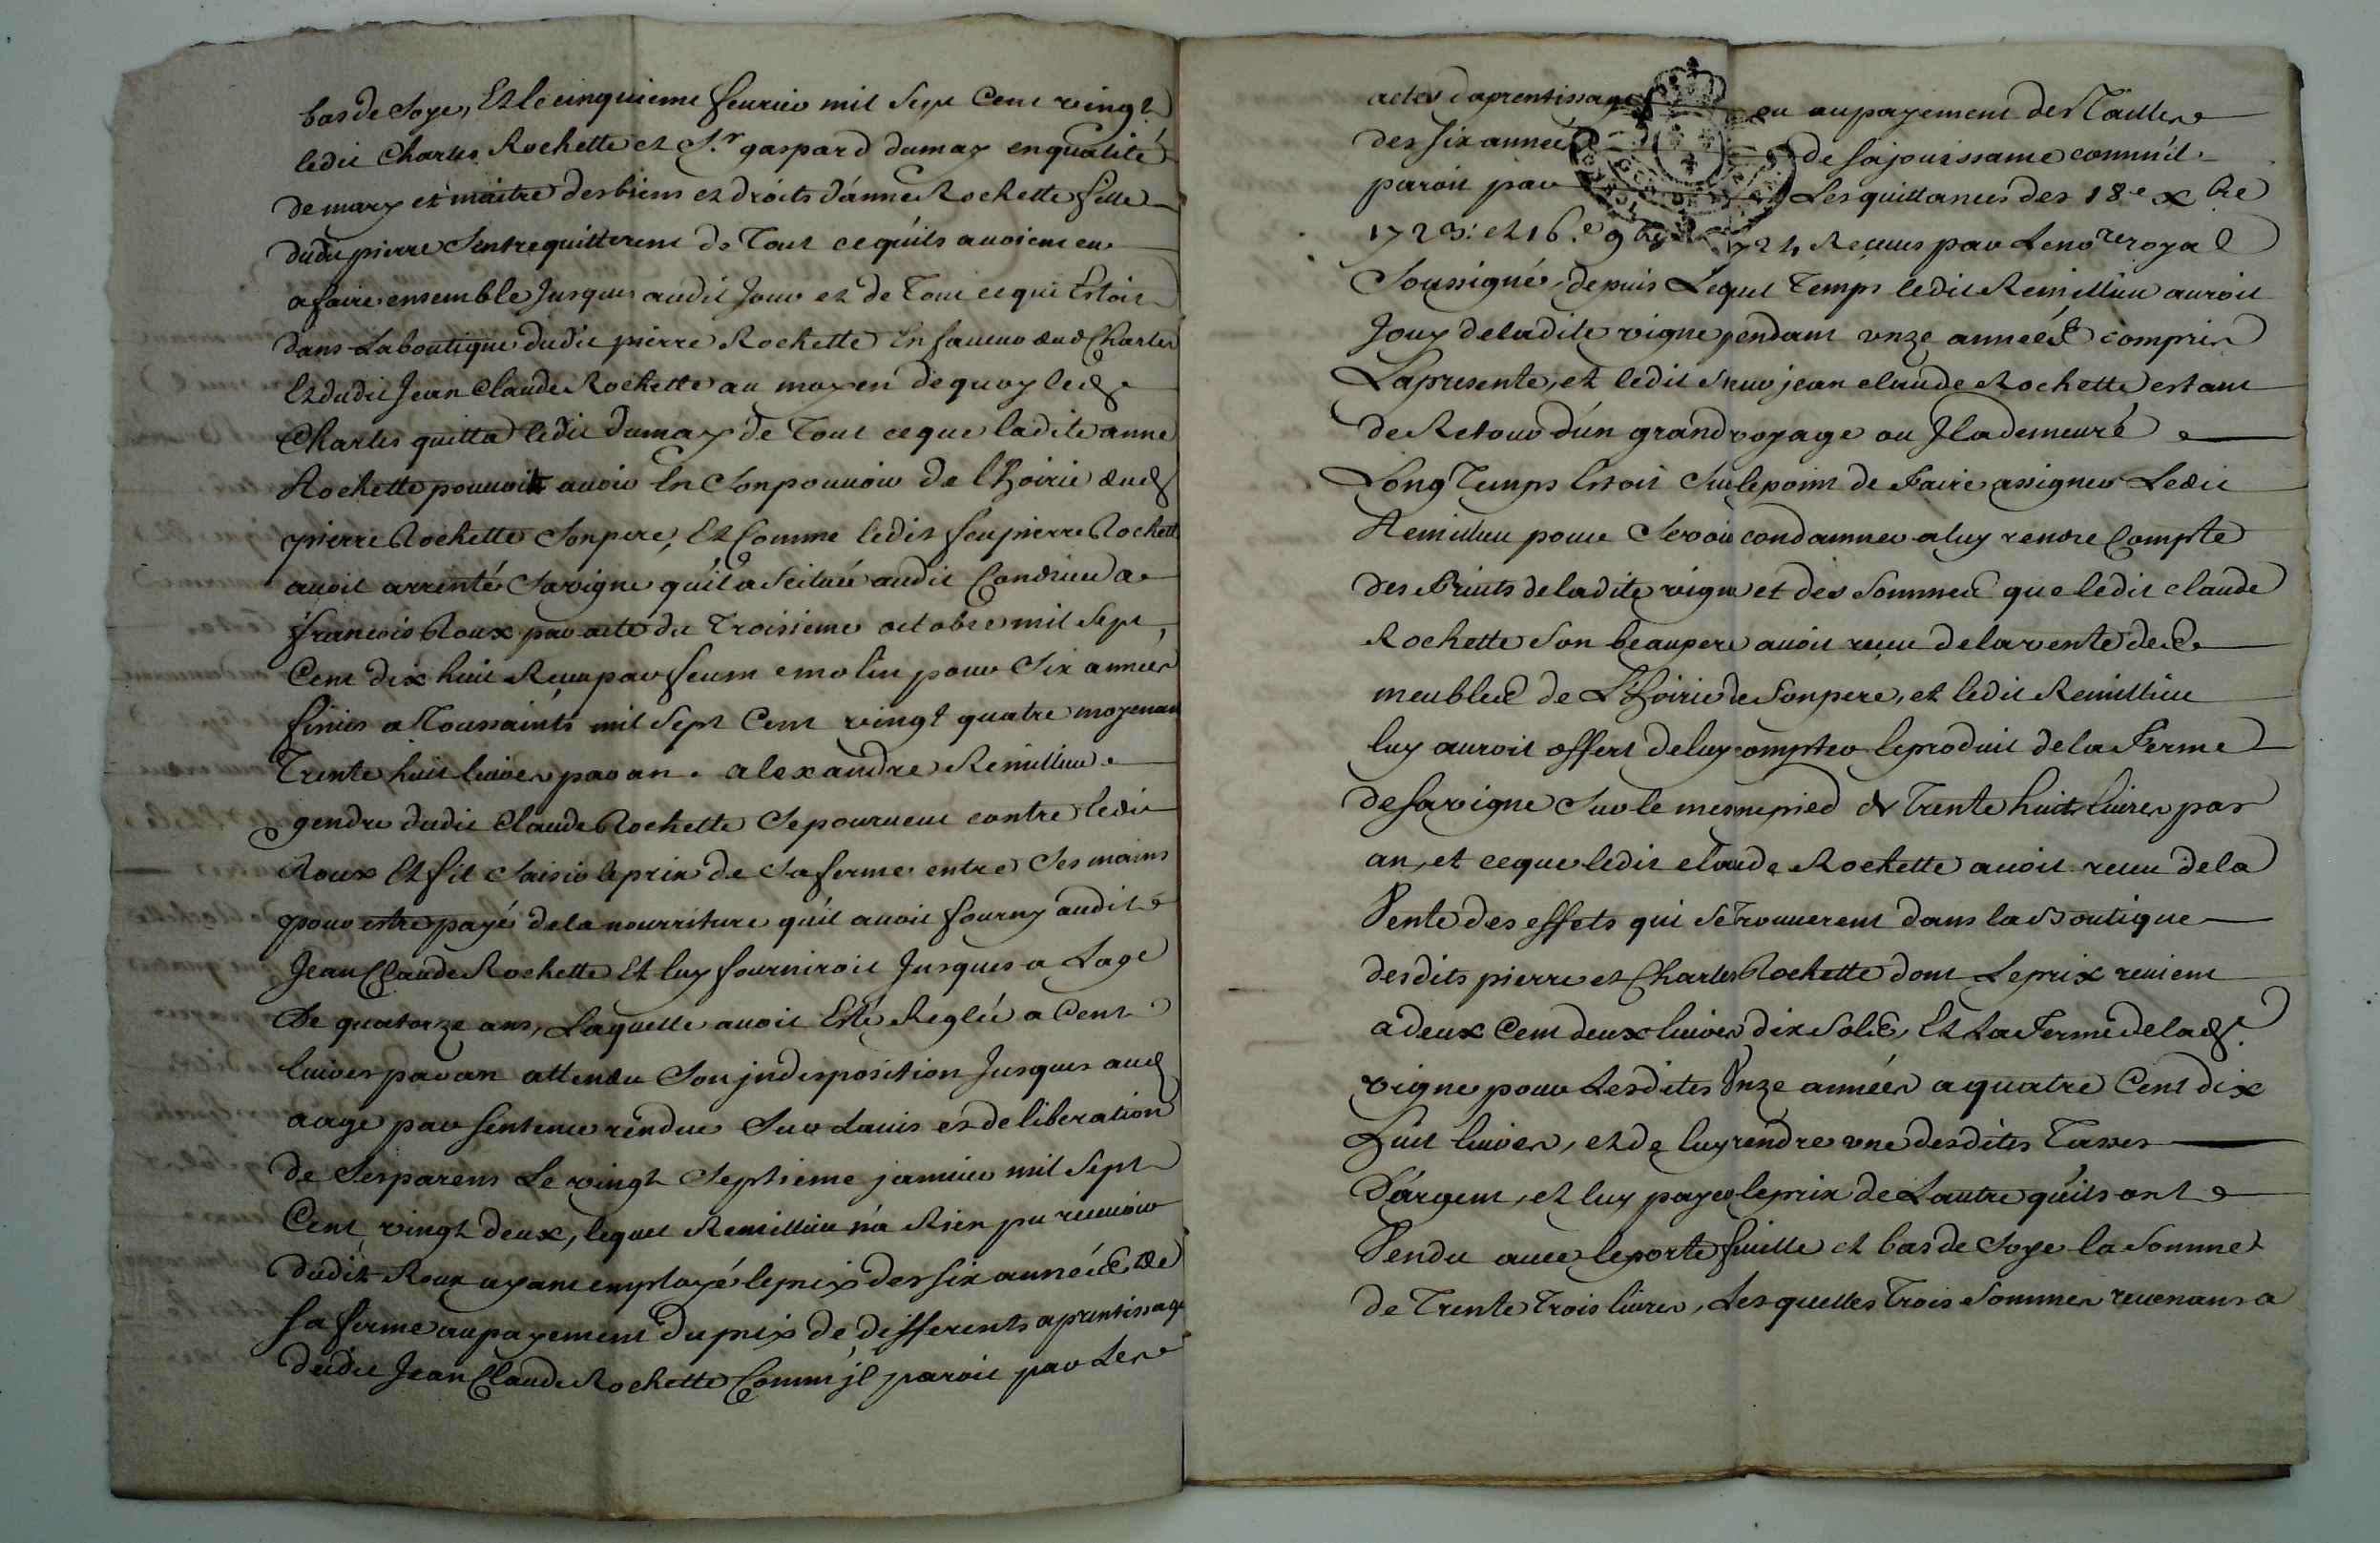 bas de soye, Et le cinquieme feurier mil sept cent vingt
ledit Charles Rochette et S.r gaspard dumay en qualité
de mary et maitre des biens et droits d'anne Rochette fille
dudit pierre s'entrequitterent de Tout ce qu'ils auoient eu
a faire ensemble Jusques audit Jour et de Tout ce qui Estoit
dans La boutique dudit pierre Rochette En faueur dud Charles
Et dudit Jean Claude Rochette au moyen de quoy led
Charles quitta ledit Dumay de Tout ce que ladite anne
Rochette pouuoit auoir En son pouuoir de l'hoirie dud
pierre Rochette son pere, Et Comme ledit feu pierre Rochett
auoit arrenté sa vigne qu'il a scituée audit Condrieu a
françois Roux par acte du Troisieme octobre mil sept
Cent dix huit Receu par feu m.e molin pour six années
finies a Toussaints mil sept Cent vingt quatre moyenan
Trente huit liures par an. alexandre Remillieu
gendre dudit Claude Rochette se pourueut contre ledit
Roux Et fit saisir le prix de sa ferme entre ses mains
pour estre payé de la nourriture qu'il auoit fourny audit
Jean Claude Rochette Et luy fourniroit Jusques a Lage
De quatorze ans, Laquelle auoit Esté Reglée a Cent
liures par an attendu son jndisposition Jusques aud
aage par sentence rendue sur Lauis et deliberation
de ses parens Le vingt septieme januier mil sept
Cent vingt deux, lequel Remillieu n'a Rien pu receuoir
dudit Roux ayant employé le prix des six années de
sa ferme au payement du prix de differents aprentissage
dudit Jean Claude Rochette Comm'jl paroit par Les
actes d'aprentissage ou au payement des Tailles
des six années de sa jouissance comm'il
paroit par Les quittances des 18.e xbre
1723. et 16.e 9bre 1724 Receues par Le no.re royal
soussigné, depuis Lequel Temps ledit Remillieu auroit
Jouy de ladite vigne pendant unze années compris
La presente, et ledit sieur jean claude Rochette estant
de Retour d'un grand voyage ou Jl a demeuré
Long Temps Estoit sur le point de Faire assigner Ledit
Remillieu pour se voir condamner a luy rendre Compte
des Fruits de ladite vigne et des sommes que ledit claude
Rochette son beaupere auoit receu de la vente des
meubles de L'hoirie de son pere, et ledit Remillieu
luy auroit offert de luy compter le produit de la Ferme
de sa vigne sur le mesme pied de Trente huit liures par
an, et ce que ledit claude Rochette auoit receu de la
Vente des effets qui se trouuerent dans la Boutique
desdits pierre et Charles Rochette dont Le prix reuient
a deux Cent deux liures dix sols, Et La Ferme de lad.e
vigne pour Lesdites Unze années a quatre Cent dix
huit liures, et de luy rendre vne desdites Tasses
D'argent, et luy payer le prix de Lautre qu'ils ont
Vendu auec le porte fuille et bas de soye la somme
de Trente Trois liures, Lesquelles Trois sommes reuenans a